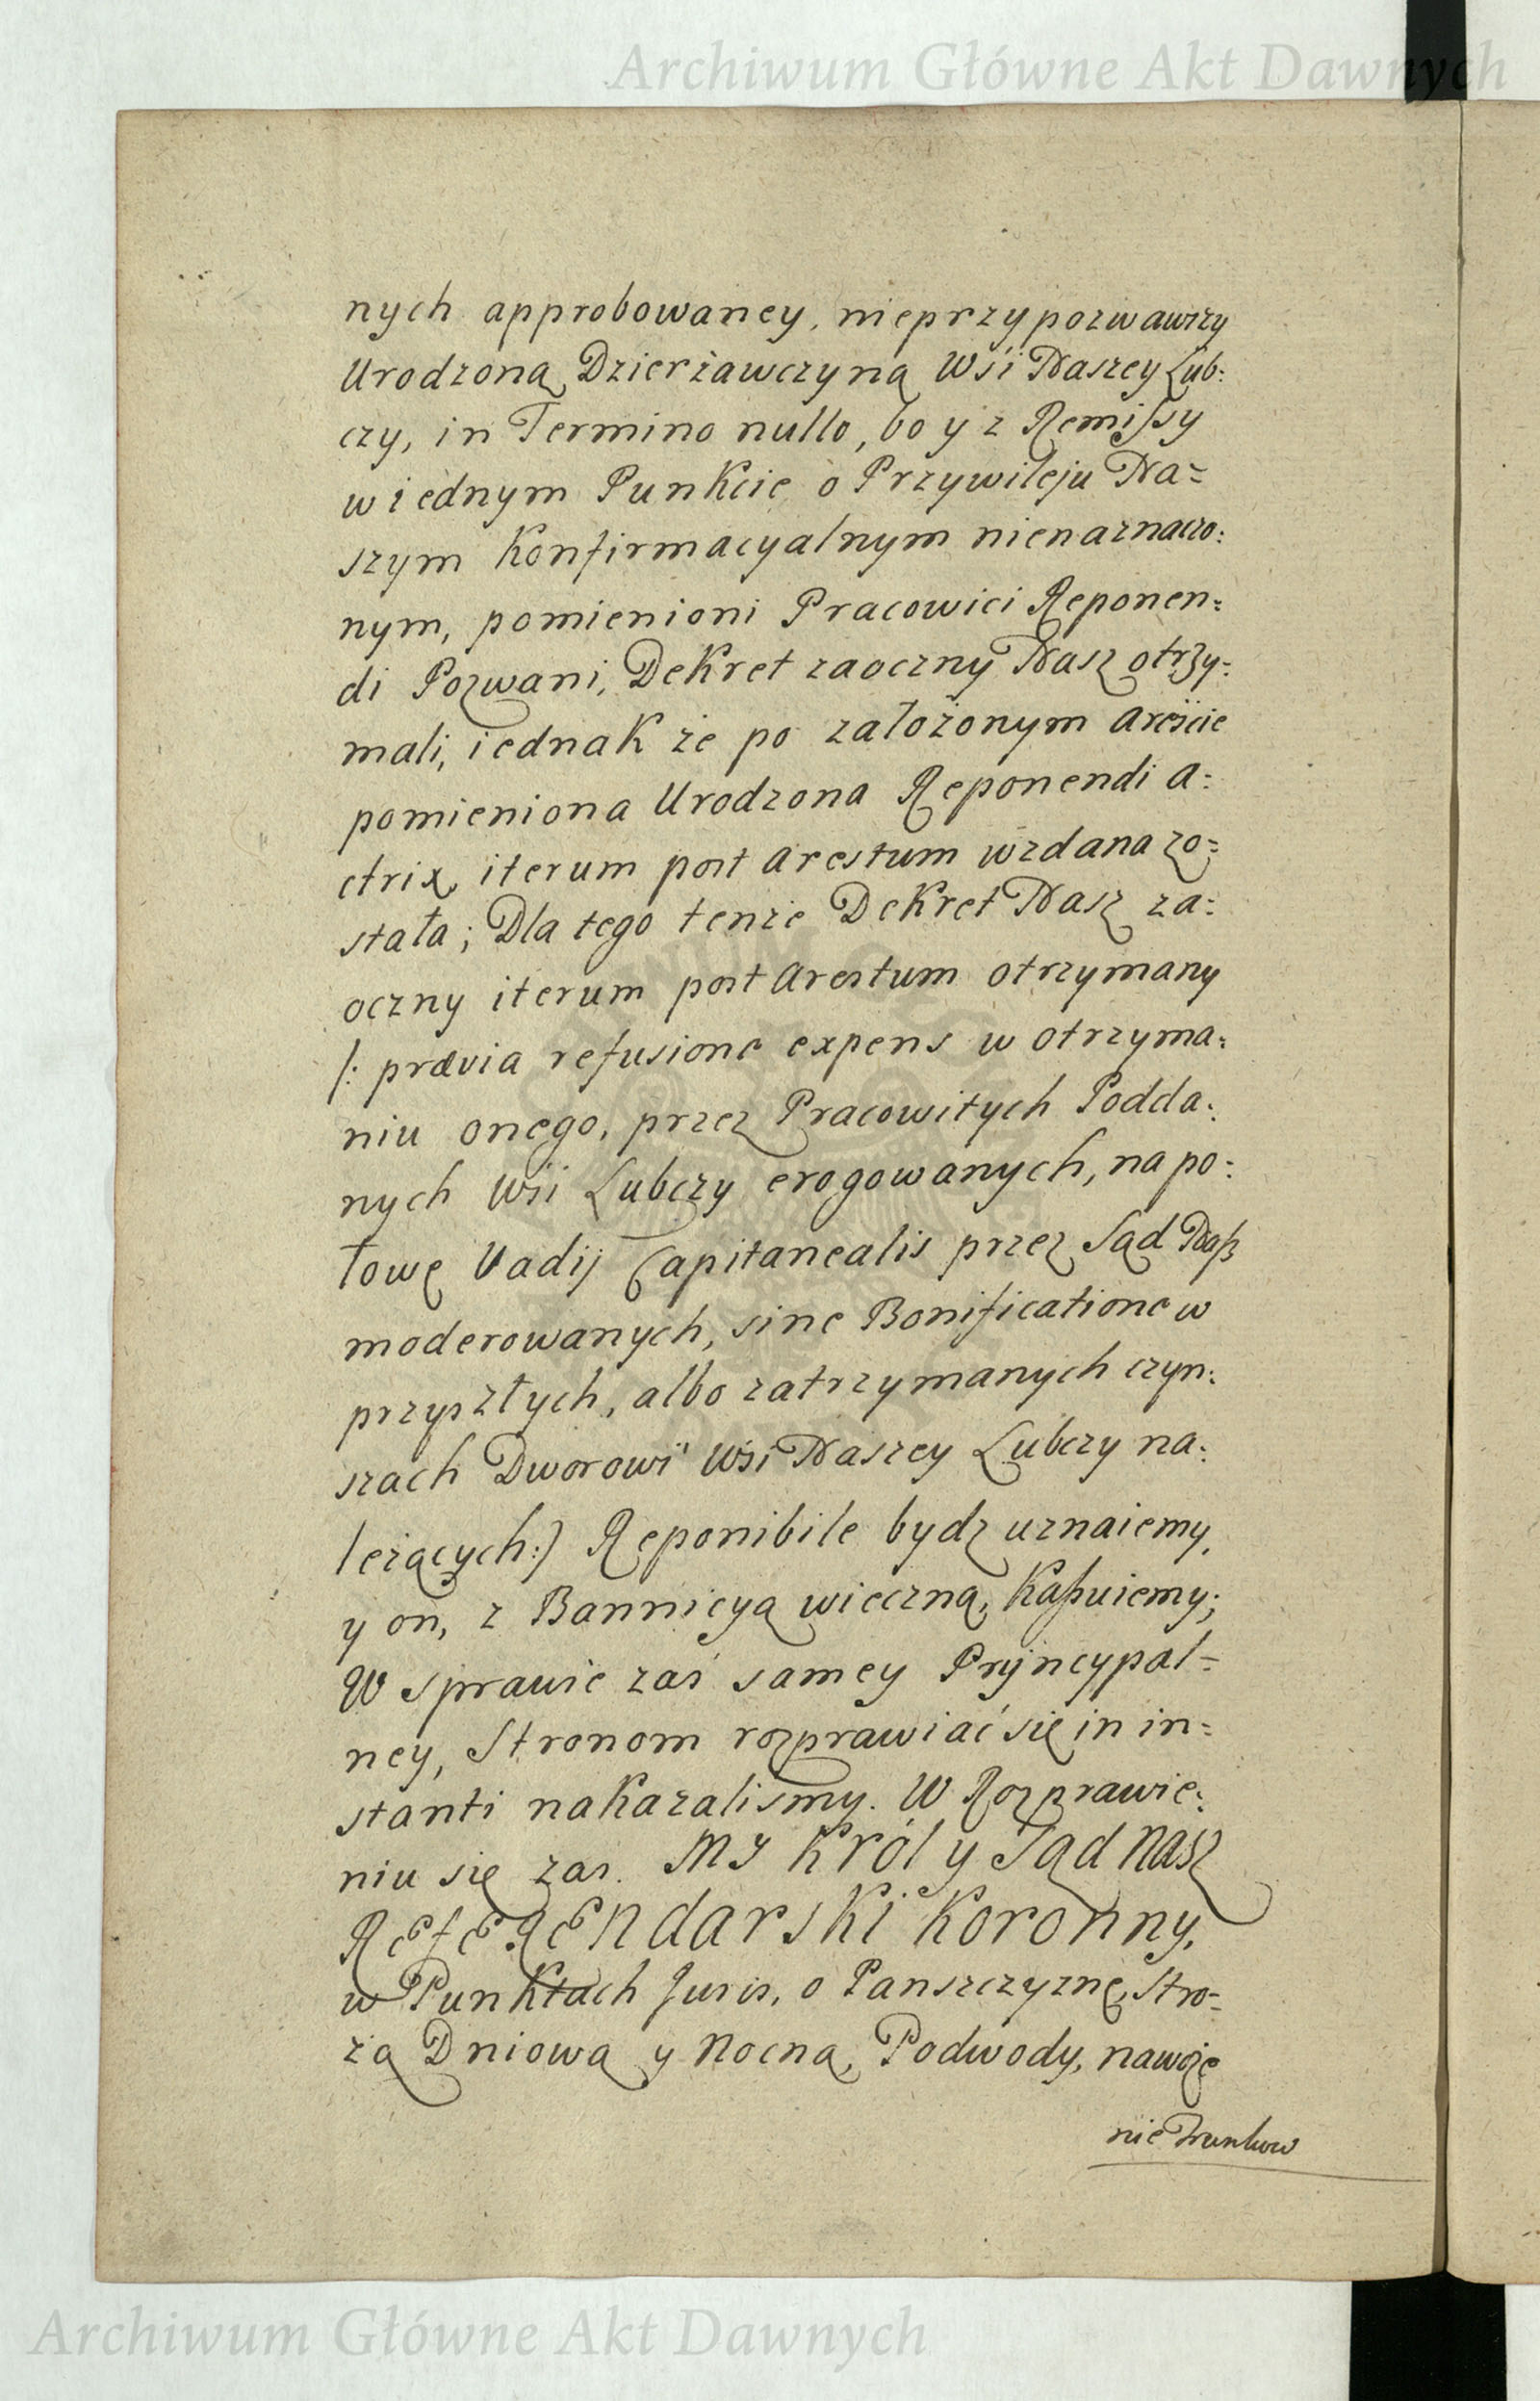 Archiwum Główne Akt Dawnych
nych approbowaney, nieprzypozwawszy
Urodzoną Dzierżawczyną Wśi Naszey Lub:
czy, in Termino nullo, bo y z Remissy
w iednym Punkcie o Przywileju Na=
szym Konfirmacyalnym nienaznaczo:
nym, pomienioni Pracowici Reponen=
di Pozwani, Dekret zaoczny Nasz otrzy=
mali, iednak że po założonym Areście
pomieniona Urodzona Reponendi A=
ctrix, iterum post Arestum wzdana zo=
stała; Dla tego tenże Dekret Nasz za=
oczny iterum post Arestum otrzymany
/: prævia refusione expens w otrzyma=
niu onego, przez Pracowitych Podda:
nych Wśi Lubczy erogowanych, na po:
łowę Vadij Capitanealis przez Sąd Nasz
moderowanych, sine Bonificatione w
przyszłych, albo zatrzymanych czyn:
szach Dworowi Wśi Naszey Lubczy na:
leżących:/ Reponibile bydz uznaiemy,
y on, z Bannicyą wieczną, Kassuiemy;
W sprawie zaś samey Pryncypal=
ney, Stronom rozprawiać się in in=
stanti nakazalismy. W Rozprawie:
niu się zas. MY Król y Sąd Nasz
REFERENDarski Koronny,
w Punktach Juris, o Panszczyznę, Stro=
żą Dniową y Nocną, Podwody, nawoże
nie Trunkow
Archiwum Główne Akt Dawnych